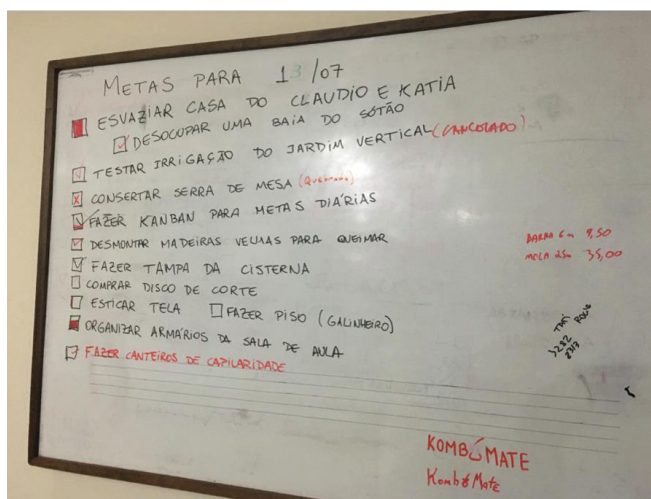 METAS PARA 13/07
ESVAZIAR CASA DO CLAUDIO E KATIA
DESOCUPAR UMA BAIA DO SÓTÃO
TESTAR IRRIGAÇÃO DO JARDIM VERTICAL (CANCOLADO)
CONSERTAR SERRA DE MESA (Quebrada)
FAZER KANBAN PARA METAS DIÁRIAS
DESMONTAR MADEIRAS VELHAS PARA QUEIMAR
BARRA 6m 9,50
FAZER TAMPA DA CISTERNA
MOLA 25m 35,00
COMPRAR DISCO DE CORTE
ESTICAR TELA FAZER PISO (GALINHEIRO)
ORGANIZAR ARMÁRIOS DA SALA DE AULA
3282
FAZER CANTEIROS DE CAPILARIDADE
KOMBÚMATE
KombúMate